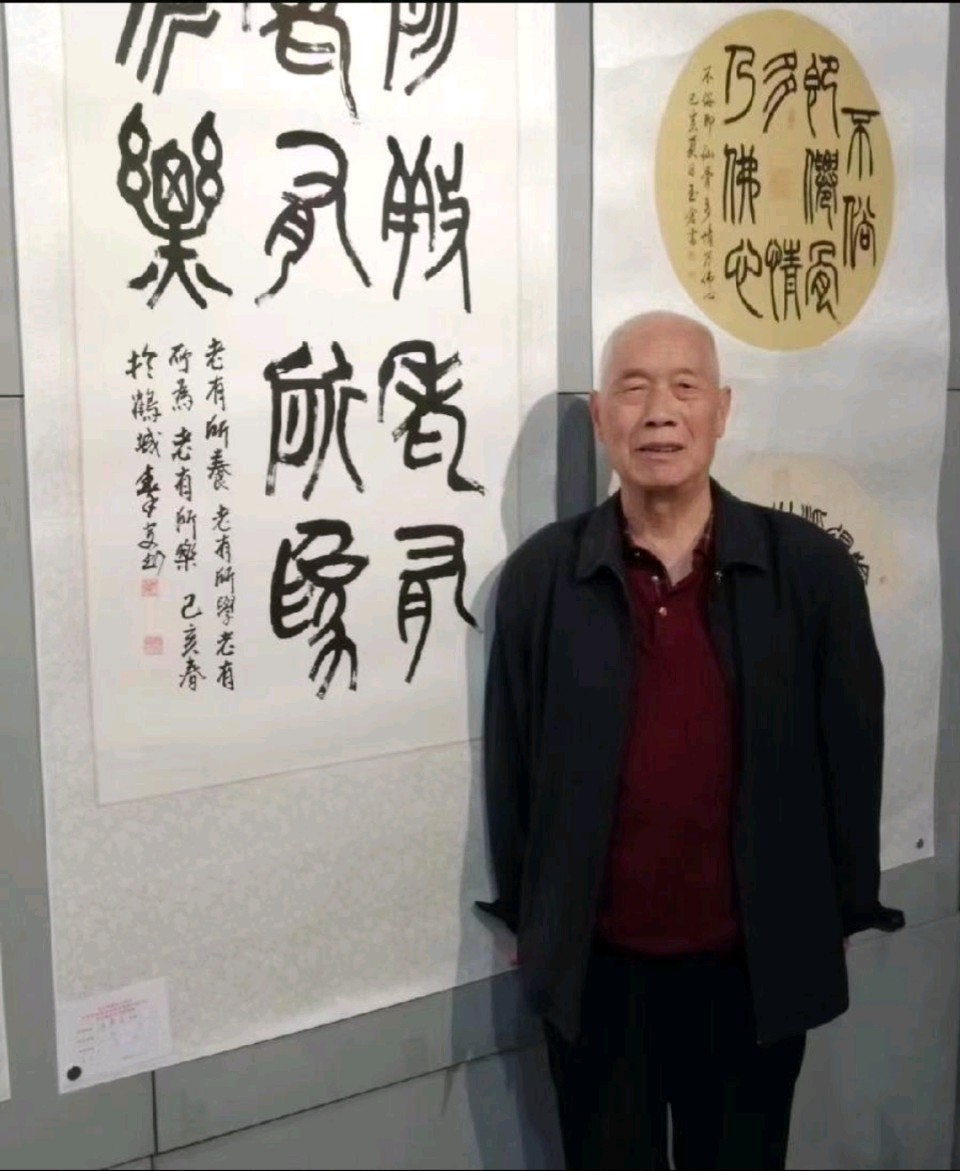 不俗
即僊骨
多情
乃佛心
不俗即仙骨多情乃佛心
己亥夏日玉書
所養老有
老有所為
所樂
老有所養 老有所學老有
所為 老有所樂 己亥春
於鶴城